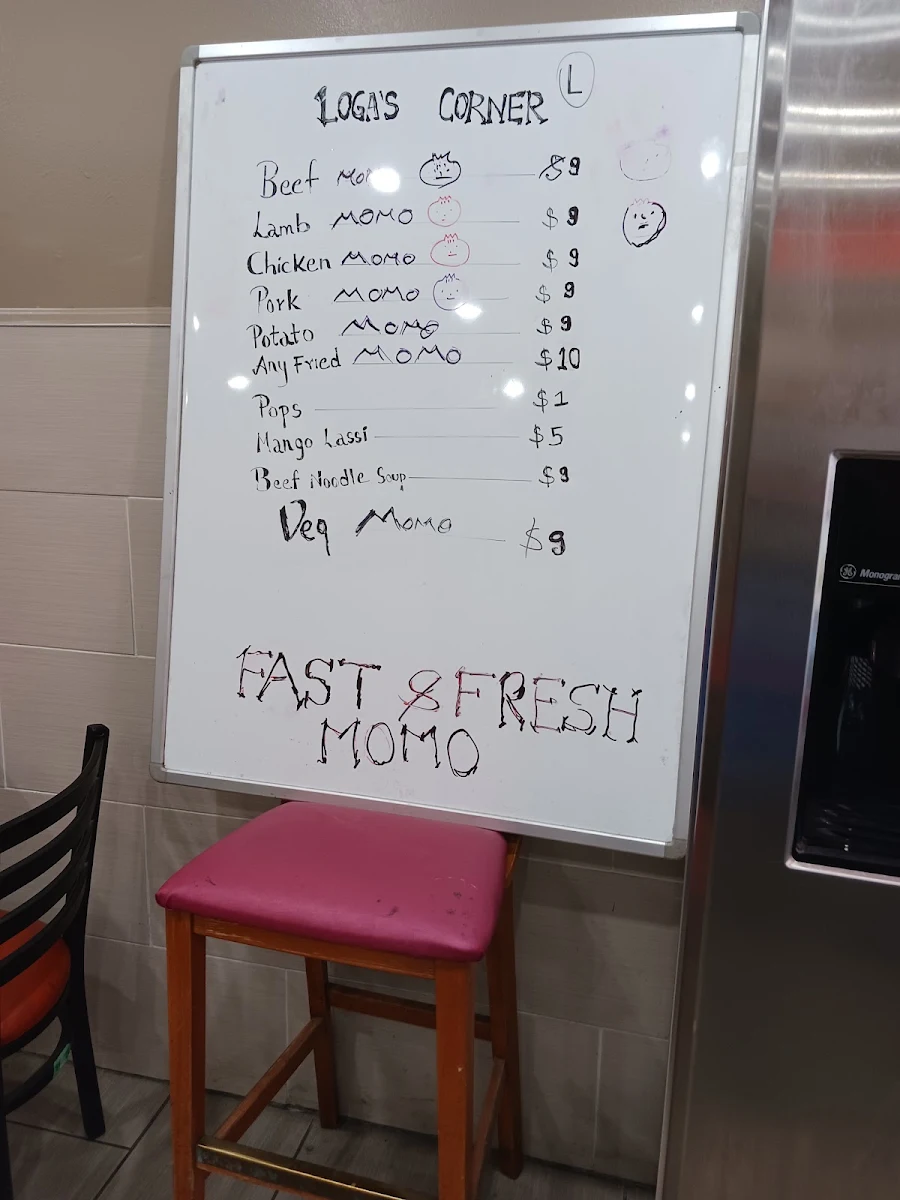 LOGA'S CORNER L
Beef MOMO $9
Lamb MOMO $9
Chicken MOMO $9
Pork MOMO $9
Potato MOMO $9
Any Fried MOMO $10
Pops $1
Mango Lassi $5
Beef Noodle Soup $9
Veg MOMO $9
FAST & FRESH
MOMO
Monogra